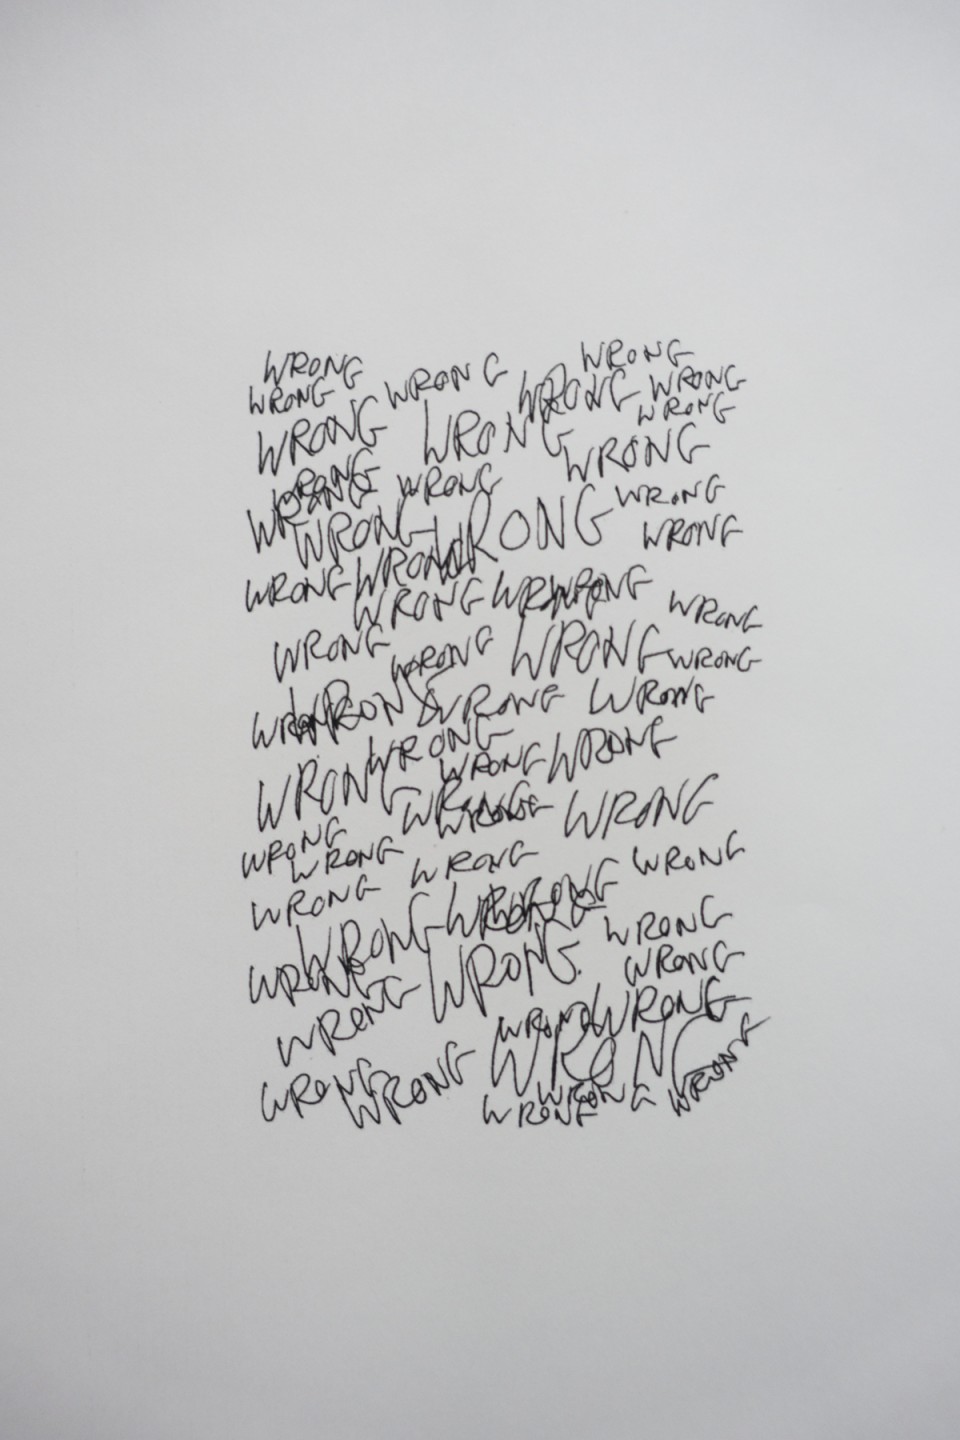 WRONG WRONG
WRONG WRONG WRONG WRONG
WRONG WRONG WRONG
WRONG WRONG
WRONG WRONG WRONG
WRONG WRONG WRONG WRONG
WRONG WRONG
WRONG WRONG WRONG WRONG
WRONG WRONG WRONG
WRONG WRONG WRONG WRONG
WRONG WRONG WRONG WRONG
WRONG WRONG WRONG
WRONG WRONG WRONG
WRONG WRONG WRONG
WRONG WRONG
WRONG WRONG WRONG
WRONG WRONG WRONG WRONG
WRONG WRONG WRONG
WRONG WRONG WRONG
WRONG WRONG WRONG
WRONG WRONG WRONG WRONG
WRONG WRONG